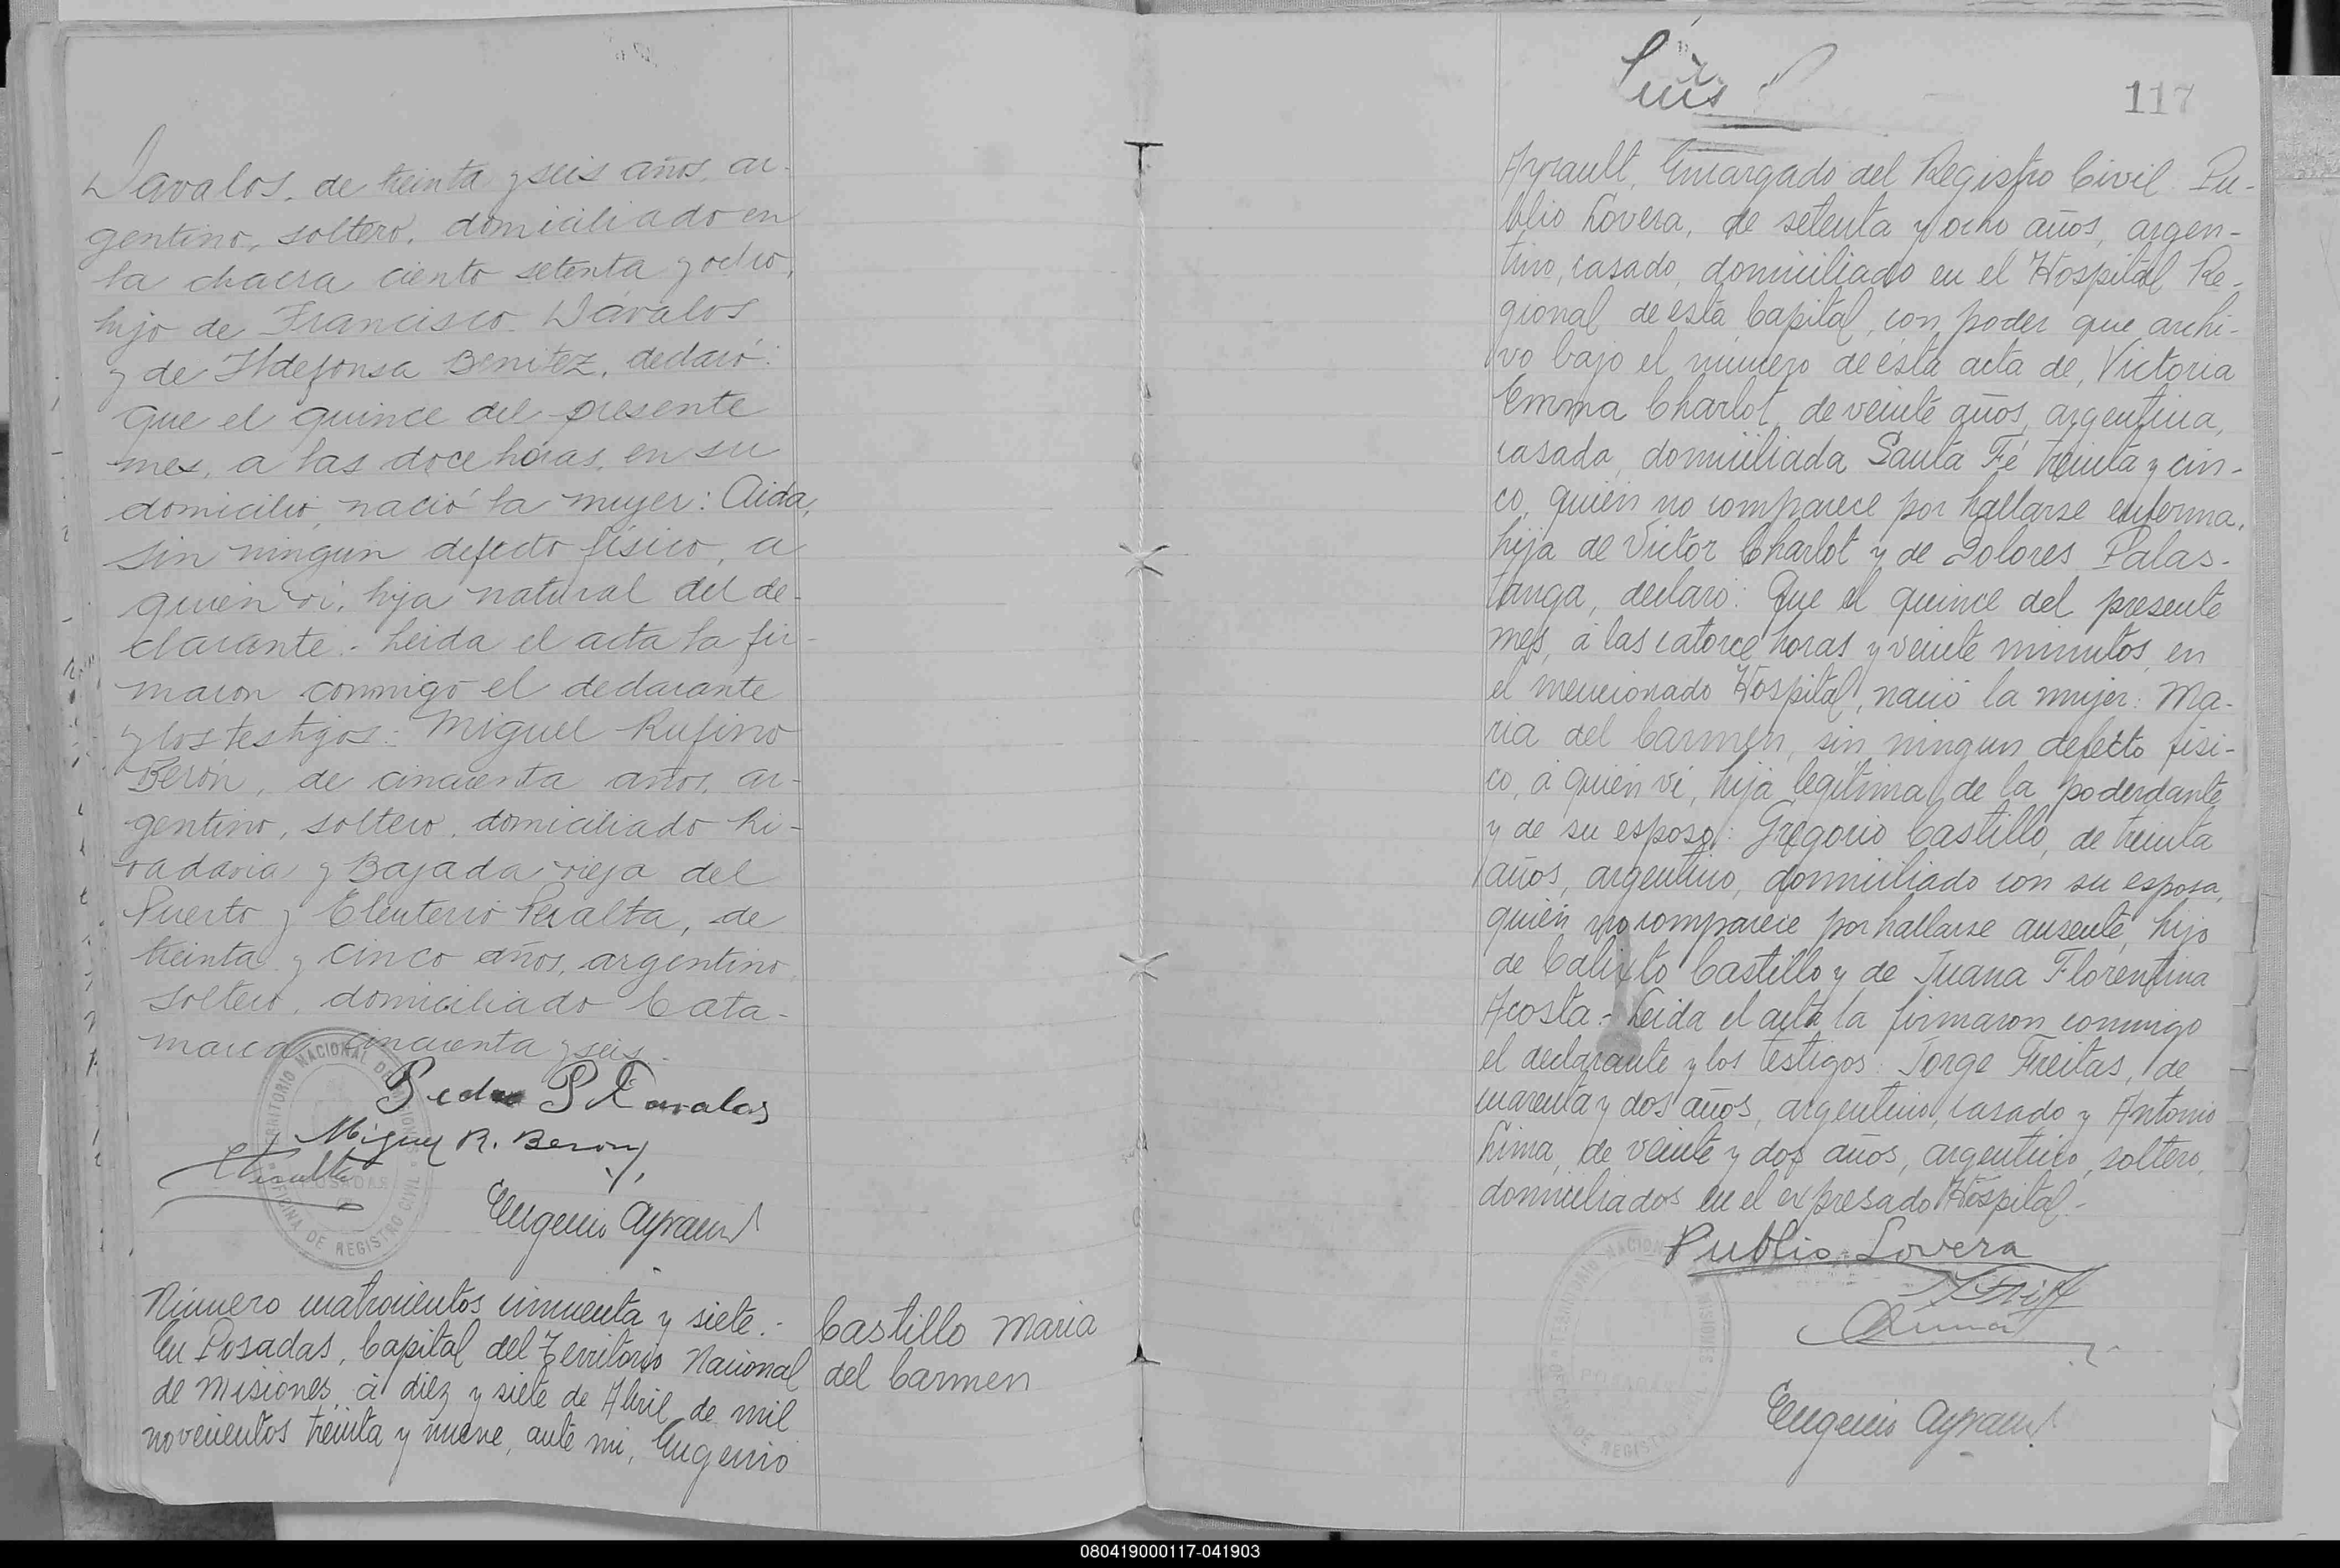 Dávalos, de treinta y seis años, ar-
gentino, soltero, domiciliado en
la chacra ciento setenta y ocho,
hijo de Francisco Dávalos
y de Ildefonsa Benitez, declaró:
Que el quince del presente
mes, a las doce horas, en su
domicilio, nació la mujer: Aida,
sin ningun defecto físico, a
quien vi, hija natural del de-
clarante.- Leida el acta la fir-
maron conmigo el declarante
y los testigos: Miguel Rufino
Berón, de cincuenta años, ar-
gentino, soltero, domiciliado Ri-
vadavia y Bajada vieja del
Puerto y Eleuterio Peralta, de
treinta y cinco años, argentino
soltero, domiciliado Cata-
marca cincuenta y seis.
Pedro P Davalos
Miguel R. Beron
EPeralta
Eugenio Ayrault
TERRITORIO NACIONAL DE MISIONES
POSADAS
OFICINA DE REGISTRO CIVIL
Número cuatrocientos cincuenta y siete.-
En Posadas, Capital del Territorio Nacional
de Misiones, á diez y siete de Abril de mil
novecientos treinta y nueve, ante mi, Eugenio
Castillo Maria
del Carmen
117
Ayrault, Encargado del Registro Civil. Pu-
blio Lovera, de setenta y ocho años, argen-
tino, casado, domiciliado en el Hospital Re-
gional de esta Capital, con poder que archi-
vo bajo el número de ésta acta de, Victoria
Emma Charlot, de veinte años, argentina,
casada, domiciliada Santa Fé treinta y cin-
co, quién no comparece por hallarse enferma,
hija de Victor Charlot y de Dolores Palas-
tanga, declaró: Que el quince del presente
mes, á las catorce horas y veinte minutos, en
el mencionado Hospital, nació la mujer: Ma-
ria del Carmen, sin ningun defecto fisi-
co, á quién vi, hija legitima de la poderdante,
y de su esposo: Gregorio Castillo, de treinta
años, argentino, domiciliado con su esposa,
quién no comparece por hallarse ausente, hijo
de Calixto Castillo y de Juana Florentina
Acosta.- Leida el acta la firmaron conmigo
el declarante y los testigos: Jorge Freitas, de
cuarenta y dos años, argentino, casado y Antonio
Lima, de veinte y dos años, argentino, soltero,
domiciliados en el expresado Hospital.-
Publio Lovera
Eugenio Ayrault
POSADAS
DE REGISTRO
080419000117-041903